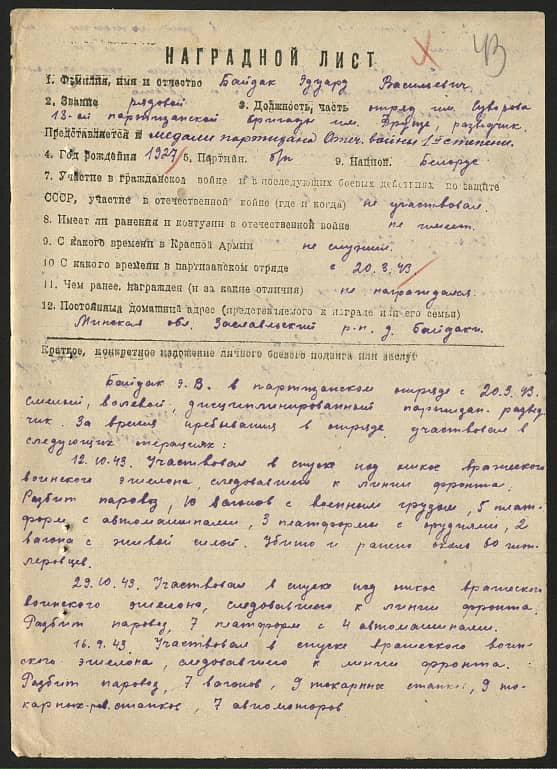 43
НАГРАДНОЙ ЛИСТ
1. Фамилия, имя и отчество Байдак Эдуард Васильевич.
2. Звание рядовой 3. Должность, часть отряд им. Суворова
13-ой партизанской бригады им. разведчик.
Представляется к медали партизана Отеч. войны 1 степени.
4. Год рождения 1927 5. Партийн. б/п 9. Национ. Белорус
7. Участие в гражданской войне и в последующих боевых действиях по защите
СССР, участие в отечественной войне (где и когда) не участвовал.
8. Имеет ли ранения и контузии в отечественной войне не имеет.
9. С какого времени в Красной Армии не служил.
10 С какого времени в партизанском отряде с 20.3.43.
11. Чем ранее награжден (и за какие отличия) не награждался.
12. Постоянный домашний адрес (представляемого к награде и и его семьи)
Минская обл. Заславльский р-н. д. Байдаки.
Краткое, конкретное изложение личного боевого подвига или заслуг
Байдак Э. В. в партизанском отряде с 20.3.43.
смелый, волевой, дисциплинированный партизан. развед-
чик. За время пребывания в отряде участвовал в
следующих операциях:
12.10.43. Участвовал в спуске под откос вражеского
воинского эшелона, следовавшего к линии фронта.
Разбит паровоз, 10 вагонов с военным грузом, 5 плат-
форм с автомашинами, 3 платформы с орудиями, 2
вагона с живой силой. Убито и ранено около 60 гит-
леровцев.
29.10.43. Участвовал в спуске под откос вражеского
воинского эшелона, следовавшего к линии фронта.
Разбит паровоз, 7 платформ с 4 автомашинами.
16.9.43. Участвовал в спуске вражеского воин-
ского эшелона, следовавшего к линии фронта.
Разбит паровоз, 7 вагонов, 9 токарных станков, 9 то-
карных-рев. станков, 7 авиомоторов